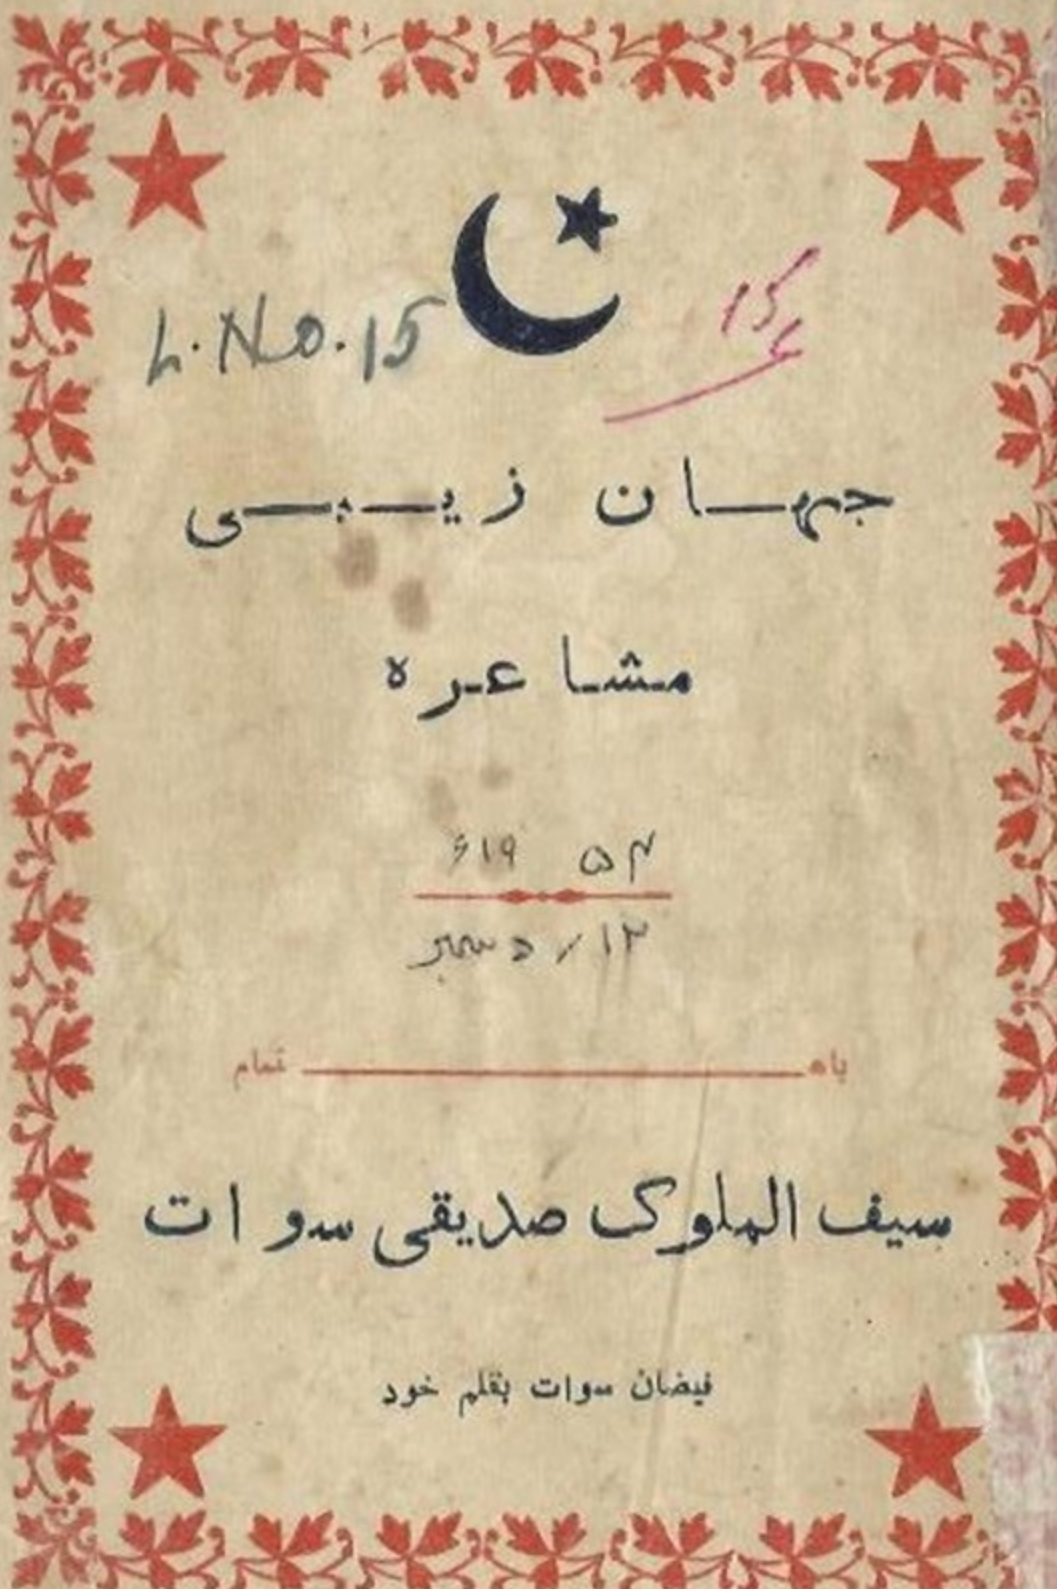 L.No.15
جہان زیبی
مشاعرہ
۱۹۵۴ء
۱۲؍ دسمبر
پاہ تمام
سیف الملوک صدیقی سوات
فیضان سوات بقلم خود